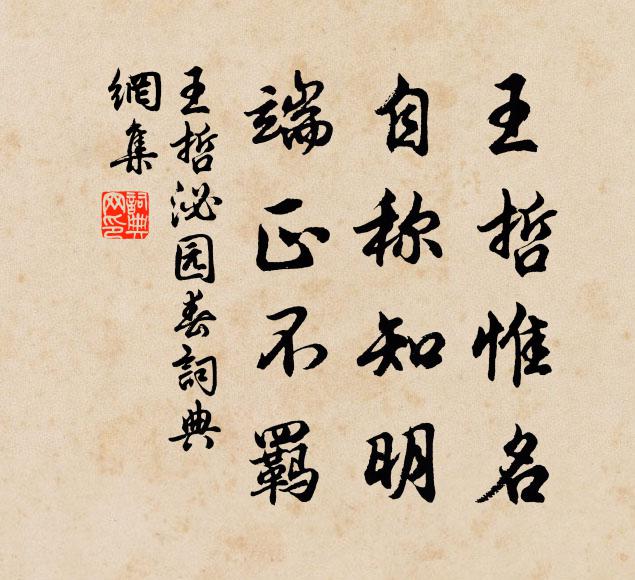 王哲惟名
自称知明
端正不羁
王哲泌园春詞典
網集
詞典
网印